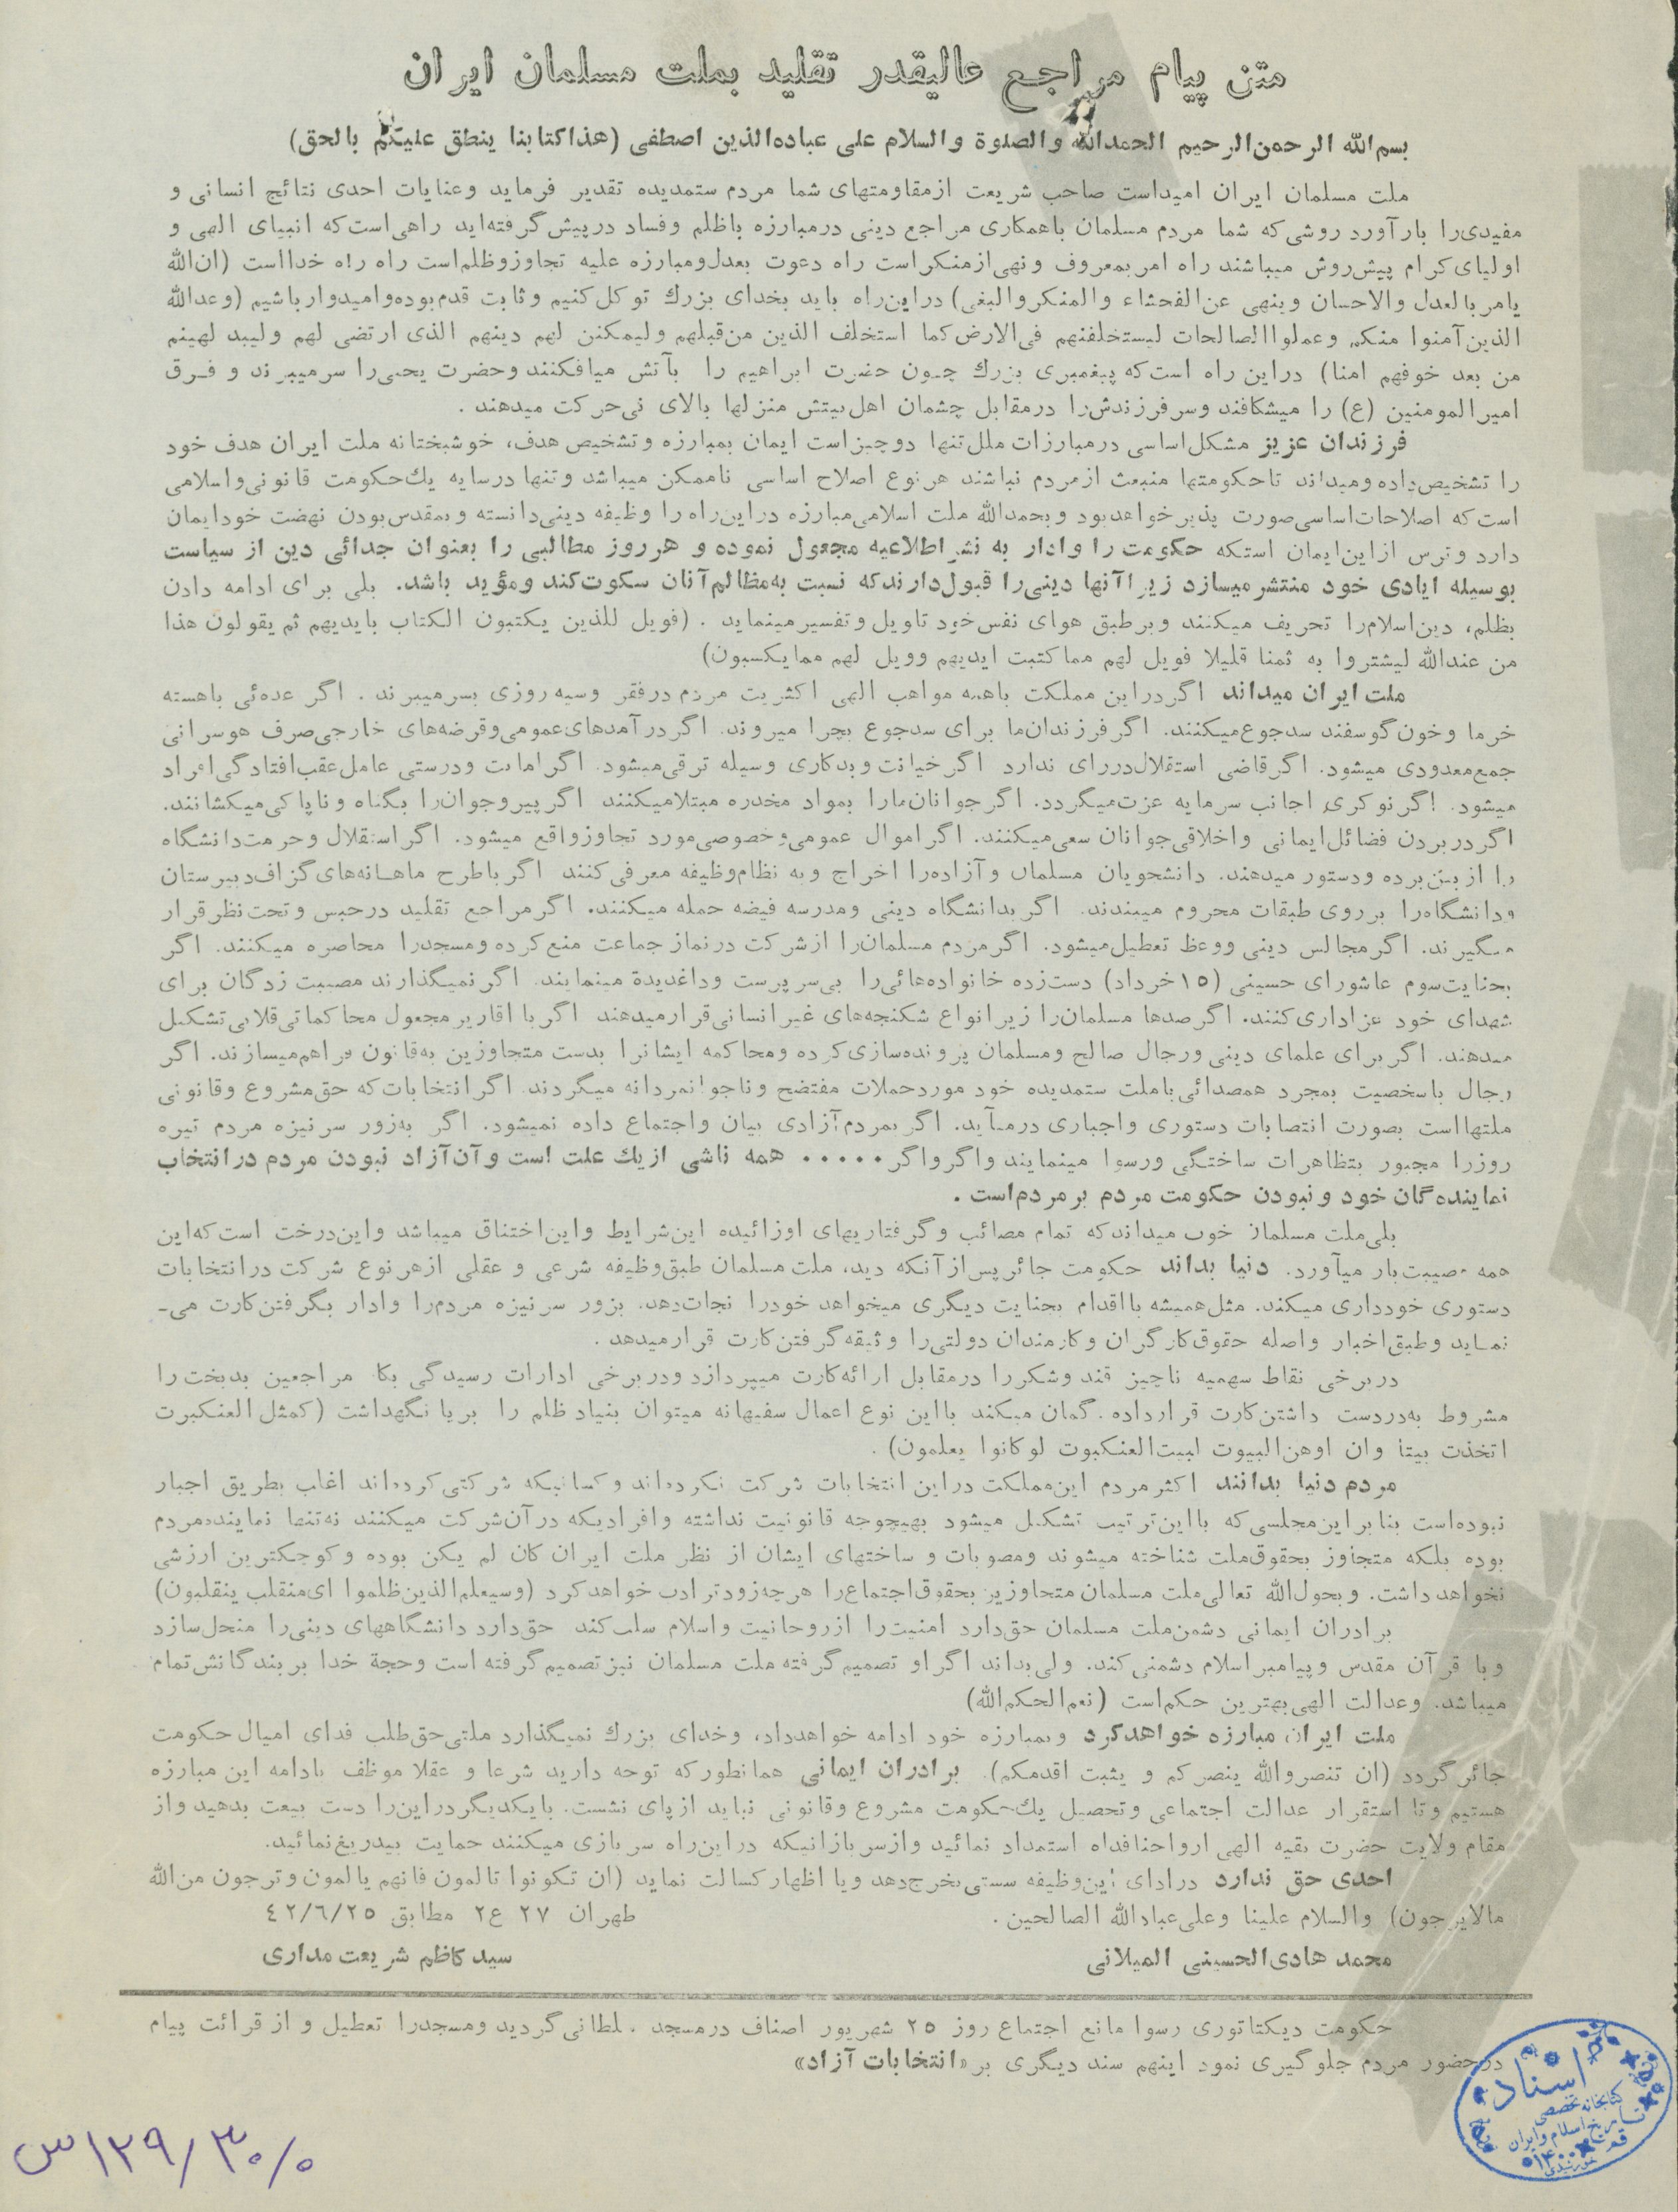 متن پیام مراجع عالیقدر تقلید بملت مسلمان ایران
بسم‌الله الرحمن‌الرحیم الحمدالله والصلوة والسلام علی عباده‌الذین اصطفی (هذاکتابنا ینطق علیکم بالحق)
ملت مسلمان ایران امیداست صاحب شریعت ازمقاومتهای شما مردم ستمدیده تقدیر فرماید وعنایات احدی نتائج انسانی و
مفیدی‌را بارآورد روشی‌که شما مردم مسلمان باهمکاری مراجع دینی درمبارزه باظلم وفساد درپیش‌گرفته‌اید راهی‌است‌که انبیای الهی و
اولیای‌کرام پیش‌روش میباشند راه امربمعروف ونهی‌ازمنکراست راه دعوت بعدل‌ومبارزه علیه تجاوزوظلم‌است راه راه خدااست (ان‌الله
یامربالعدل والاحسان وینهی عن‌الفحشاء والمنکروالبغی) دراین‌راه باید بخدای بزرك توکل‌کنیم وثابت قدم‌بوده‌وامیدوارباشیم (وعدالله
الذین‌آمنوا منکم وعملواالصالحات لیستخلفنهم فی‌الارض‌کما استخلف الذین من‌قبلهم ولیمکنن لهم دینهم الذی ارتضی لهم ولیبد لهینم
من بعد خوفهم امنا) دراین راه است‌که پیغمبری بزرك چون حضرت ابراهیم را بآتش میافکنند وحضرت یحیی‌را سرمیبرند و فرق
امیرالمومنین (ع) را میشکافند وسرفرزندش‌را درمقابل چشمان اهل‌بیتش منزلها بالای نی‌حرکت میدهند .
فرزندان عزیز مشکل‌اساسی درمبارزات ملل‌تنها دوچیزاست ایمان بمبارزه وتشخیص هدف، خوشبختانه ملت ایران هدف خود
را تشخیص‌داده‌ومیداند تاحکومتها منبعث ازمردم نباشند هرنوع اصلاح اساسی ناممکن میباشد وتنها درسایه یك‌حکومت قانونی‌واسلامی
است‌که اصلاحات‌اساسی‌صورت پذیرخواهدبود وبحمدالله ملت اسلامی‌مبارزه دراین‌راه را وظیفه دینی‌دانسته وبمقدس‌بودن نهضت خودایمان
دارد وترس ازاین‌ایمان استکه حکومت را وادار به نشر اطلاعیه مجعول نموده و هرروز مطالبی را بعنوان جدائی دین از سیاست
بوسیله ایادی خود منتشرمیسازد زیراآنها دینی‌را قبول‌دارندکه نسبت به‌مظالم‌آنان سکوت‌کند ومؤید باشد. بلی برای ادامه دادن
بظلم، دین‌اسلام‌را تحریف میکنند وبرطبق هوای نفس‌خود تاویل وتفسیرمینماید . (فویل للذین یکتبون الکتاب بایدیهم ثم یقولون هذا
من عندالله لیشتروا به ثمنا قلیلا فویل لهم مماکتبت ایدیهم وویل لهم ممایکسبون)
ملت ایران میداند اگردراین مملکت باهمه مواهب الهی اکثریت مردم درفقر وسیه روزی بسرمیبرند . اگر عده‌ئی باهسته
خرما وخون‌گوسفند سدجوع‌میکنند. اگرفرزندان‌ما برای سدجوع بچرا میروند. اگردرآمدهای‌عمومی‌وقرضه‌های خارجی‌صرف هوسرانی
جمع‌معدودی میشود. اگرقاضی استقلال‌دررای ندارد اگرخیانت وبدکاری وسیله ترقی‌میشود. اگرامانت ودرستی عامل‌عقب‌افتادگی‌افراد
میشود. اگرنوکری اجانب سرمایه عزت‌میگردد. اگرجوانان‌مارا بمواد مخدره مبتلامیکنند اگرپیروجوان‌را بگناه وناپاکی‌میکشانند.
اگردربردن فضائل‌ایمانی واخلاقی‌جوانان سعی‌میکنند. اگراموال عمومی‌وخصوصی‌مورد تجاوزواقع میشود. اگراستقلال وحرمت‌دانشگاه
را ازبین‌برده ودستورمیدهند. دانشجویان مسلمان وآزاده‌را اخراج وبه نظام‌وظیفه معرفی‌کنند اگرباطرح ماهانه‌های‌گزاف‌دبیرستان
ودانشگاه‌را برروی طبقات محروم میبندند. اگربدانشگاه دینی ومدرسه فیضه حمله میکنند. اگرمراجع تقلید درحبس وتحت‌نظرقرار
میگیرند. اگرمجالس دینی ووعظ تعطیل‌میشود. اگرمردم مسلمان‌را ازشرکت درنماز جماعت منع‌کرده ومسجدرا محاصره میکنند. اگر
بجنایت‌سوم عاشورای حسینی (۱۵خرداد) دست‌زده خانواده‌هائی‌را بی‌سرپرست وداغدیدة مینمایند. اگرنمیگذارند مصیبت زدگان برای
شهدای خود عزاداری‌کنند. اگرصدها مسلمان‌را زیرانواع شکنجه‌های غیرانسانی‌قرارمیدهند اگربا اقاریرمجعول محاکماتی‌قلابی‌تشکیل
میدهند. اگربرای علمای دینی ورجال صالح ومسلمان پرونده‌سازی‌کرده ومحاکمه ایشانرا بدست متجاوزین به‌قانون فراهم‌میسازند. اگر
رجال باسخصیت بمجرد همصدائی‌باملت ستمدیده خود موردحملات مفتضح وناجوانمردانه میگردند اگرانتخابات‌که حق‌مشروع وقانونی
ملتهااست بصورت انتصابات دستوری واجباری درمیآید. اگربمردم‌آزادی بیان واجتماع داده نمیشود. اگر به‌زور سرنیزه مردم تیره
روزرا مجبور بتظاهرات ساختگی ورسوا مینمایند واگرواگر..... همه ناشی ازیك علت است وآن‌آزاد نبودن مردم درانتخاب
نماینده‌گان خود ونبودن حکومت مردم برمردم‌است .
بلی‌ملت مسلمان خوب میداندکه تمام مصائب وگرفتاریهای اوزائیده این‌شرایط واین‌اختناق میباشد واین‌درخت است‌که‌این
همه مصیبت‌بار میآورد. دنیا بداند حکومت جائرپس‌ازآنکه دید، ملت‌مسلمان طبق‌وظیفه شرعی و عقلی ازهرنوع شرکت درانتخابات
دستوری خودداری میکند. مثل‌همیشه بااقدام بجنایت دیگری میخواهد خودرا نجات‌دهد. بزور سرنیزه مردم‌را وادار بگرفتن‌کارت می‌ـ
نماید وطبق‌اخبار واصله حقوق‌کارگران وکارمندان دولتی‌را وثیقه‌گرفتن‌کارت قرارمیدهد .
دربرخی نقاط سهمیه ناچیز قند وشکررا درمقابل ارائه‌کارت میپردازد ودربرخی ادارات رسیدگی بکار مراجعین بدبخت را
مشروط به‌دردست داشتن‌کارت قرارداده. گمان میکند بااین نوع اعمال سفیهانه میتوان بنیاد ظلم را برپا نگهداشت (کمثل‌العنکبوت
اتخذت بیتا وان اوهن‌البیوت لبیت‌العنکبوت لوکانوا یعلمون) .
مردم دنیا بدانند اکثرمردم این‌مملکت دراین انتخابات شرکت نکرده‌اند وکسانیکه شرکتی‌کرده‌اند اغلب بطریق اجبار
نبوده‌است بنابراین‌مجلسی‌که بااین‌ترتیب تشکیل میشود بهیچوجه قانونیت نداشته وافرادیکه درآن‌شرکت میکنند نه‌تنها نماینده‌مردم
بوده بلکه متجاوز بحقوق‌ملت شناخته میشوند ومصوبات و ساختهای ایشان از نظر ملت ایران کان لم یکن بوده وکوچکترین ارزشی
نخواهدداشت. وبحول‌الله تعالی‌ملت مسلمان متجاوزین بحقوق‌اجتماع‌را هرچه‌زودترادب خواهدکرد (وسیعلم‌الذین‌ظلموا ای‌منقلب ینقلبون)
برادران ایمانی دشمن‌ملت مسلمان حق‌دارد امنیت‌را ازروحانیت واسلام سلب‌کند حق‌دارد دانشگاههای دینی‌را منحل‌سازد
وبا قرآن مقدس وپیامبراسلام دشمنی‌کند. ولی‌بداند اگراو تصمیم‌گرفته ملت مسلمان نیزتصمیم‌گرفته است وحجة خدا بربندگانش‌تمام
میباشد. وعدالت الهی‌بهترین حکم‌است (نعم‌الحکم‌الله)
ملت ایران مبارزه خواهدکرد وبمبارزه خود ادامه خواهدداد، وخدای بزرك نمیگذارد ملتی‌حق‌طلب فدای امیال‌حکومت
جائرگردد (ان تنصروالله ینصرکم و یثبت اقدمکم). برادران ایمانی همانطورکه توجه دارید شرعا و عقلا موظف بادامه این مبارزه
هستیم وتا استقرار عدالت اجتماعی وتحصیل یك‌حکومت مشروع وقانونی نباید ازپای نشست. بایکدیگردراین‌را دست بیعت بدهید واز
مقام ولایت حضرت بقیه الهی ارواحنافداه استمداد نمائید وازسربازانیکه دراین‌راه سربازی میکنند حمایت بیدریغ‌نمائید.
احدی حق ندارد درادای این‌وظیفه سستی‌بخرج‌دهد ویا اظهارکسالت نماید (ان تکونوا تالمون فانهم یالمون‌وترجون من‌الله
مالایرجون) والسلام علینا وعلی‌عبادالله الصالحین . طهران ۲۷ ع۲ مطابق ٤٢/٦/٢٥
محمد هادی‌الحسینی المیلانی سیدکاظم شریعت مداری
حکومت دیکتاتوری رسوا مانع اجتماع روز ۲۵ شهریور اصناف درمسجد سلطانی‌گردید ومسجدرا تعطیل و از قرائت پیام
درحضور مردم جلوگیری نمود اینهم سند دیگری بر «انتخابات آزاد»
اسناد
کتابخانه تخصصی
تاریخ اسلام و ایران
قم
۱۴۰۰
خورشیدی
۱۲۹/۳۰/۰س